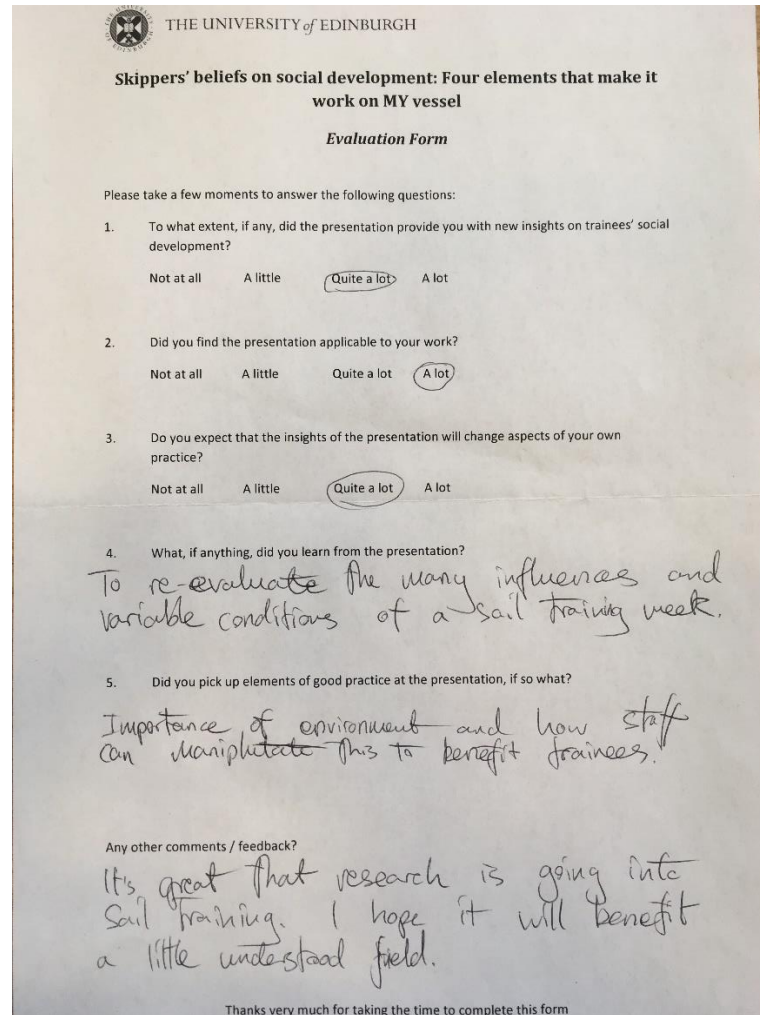 THE UNIVERSITY of EDINBURGH
Skippers' beliefs on social development: Four elements that make it
work on MY vessel
Evaluation Form
Please take a few moments to answer the following questions:
1. To what extent, if any, did the presentation provide you with new insights on trainees' social
development?
Not at all A little Quite a lot A lot
2. Did you find the presentation applicable to your work?
Not at all A little Quite a lot A lot
3. Do you expect that the insights of the presentation will change aspects of your own
practice?
Not at all A little Quite a lot A lot
4. What, if anything, did you learn from the presentation?
To re-evaluate the many influences and
variable conditions of a sail training week.
5. Did you pick up elements of good practice at the presentation, if so what?
Importance of environment and how staff
can this to benefit trainees.
Any other comments / feedback?
It's great that research is going into
Sail training. I hope it will benefit
a little understood field.
Thanks very much for taking the time to complete this form